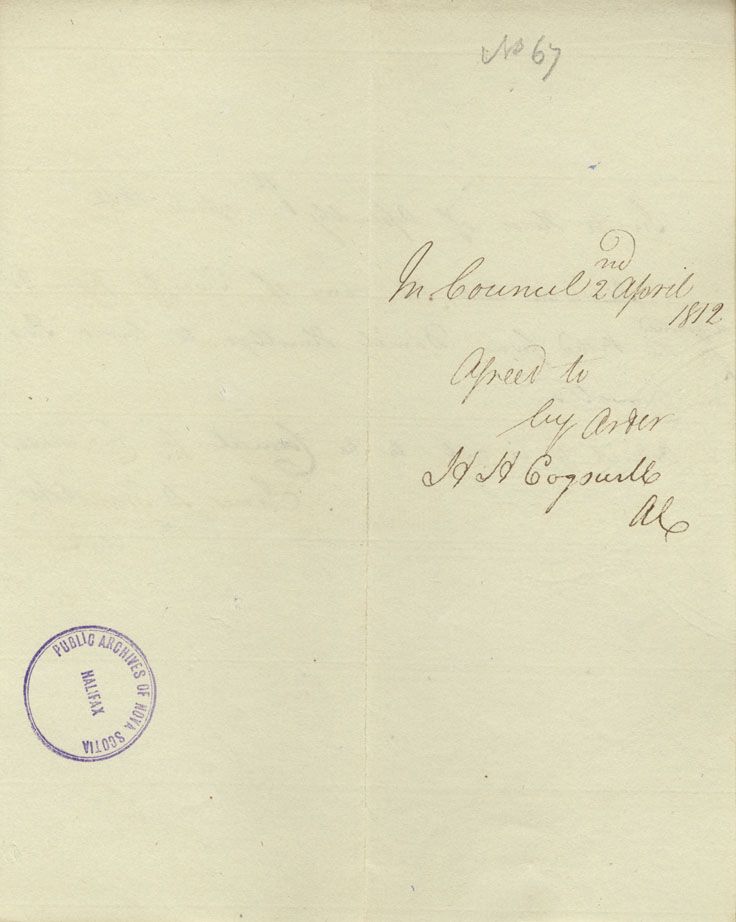 No 67
In Council 2nd April
1812
Agreed to
by order
H H Cogswell
PUBLIC ARCHIVES OF NOVA SCOTIA
HALIFAX